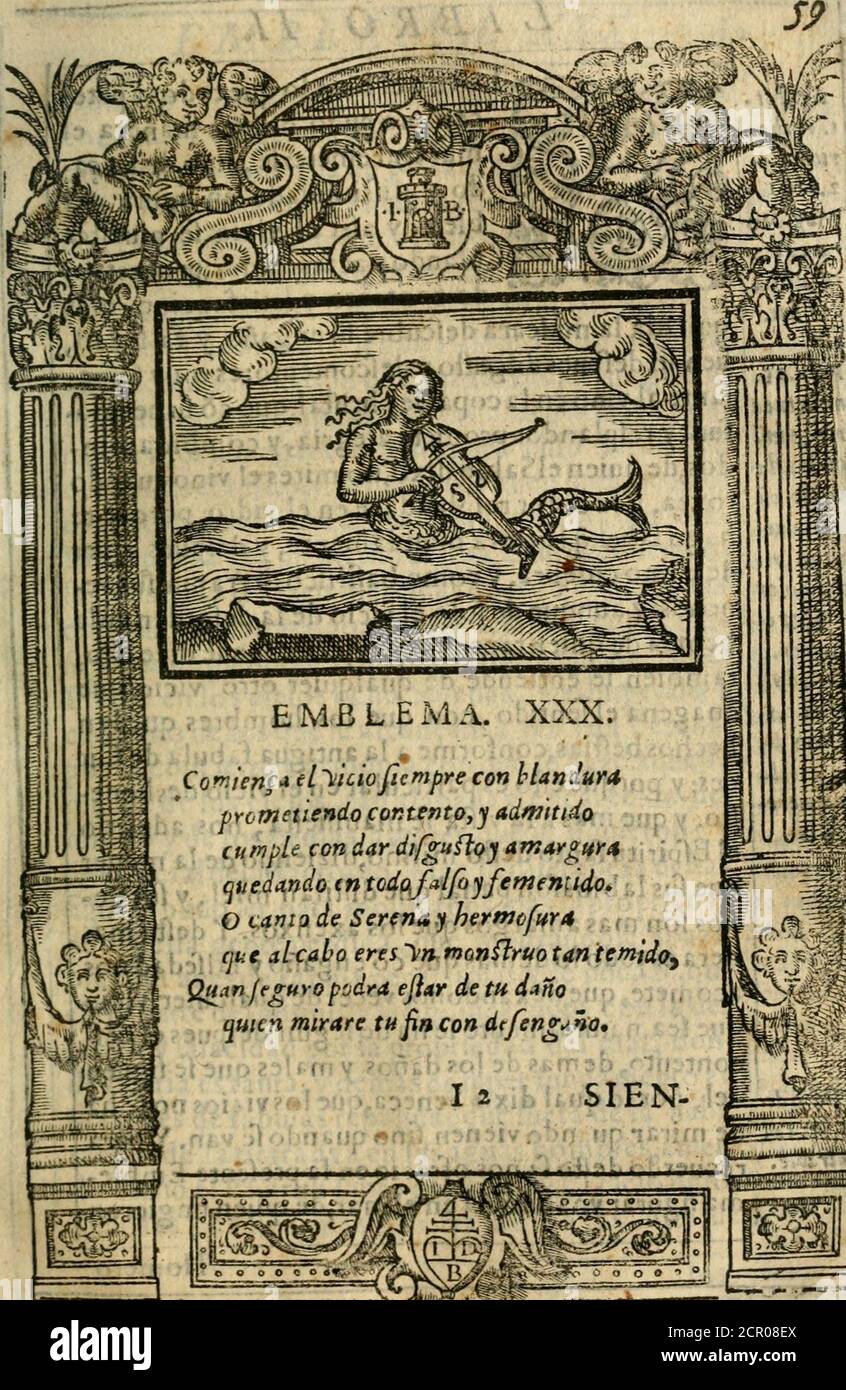 59
I B
EMBLEMA. XXX.
Comiença el vicio ſiempre con blandura
prometiendo contento, y admitido
cumple con dar diſguſto y amargura
quedando en todo falſo y fementido.
O canto de Serena y hermoſura
que al cabo eres vn monſtruo tan temido,
Quan ſeguro podra eſtar de tu daño
quien mirare tu fin con deſengaño.
I 2 SIEN-
4
I D
B
alamy
Image ID: 2CR08EX
www.alamy.com